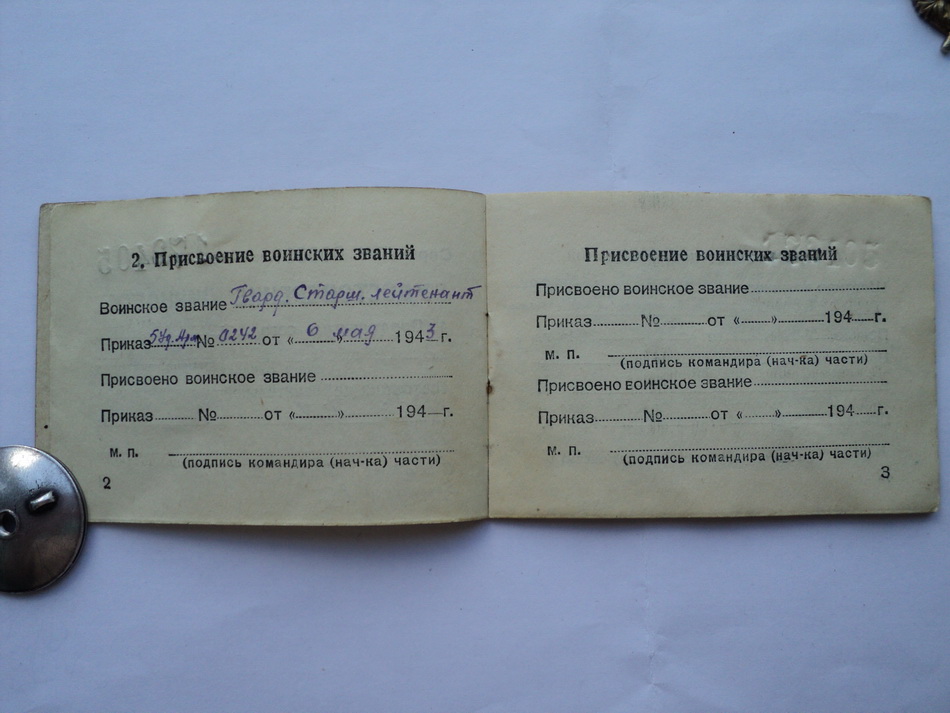 2. Присвоение воинских званий
Воинское звание Гвард. Старш. лейтенант
Приказ № 0242 от «6» мая 1943 г.
Присвоено воинское звание
Приказ № от « » 194 г.
м. п.
(подпись командира (нач-ка) части)
2
Присвоение воинских званий
Присвоено воинское звание
Приказ № от « » 194 г.
м. п.
(подпись командира (нач-ка) части)
Присвоено воинское звание
Приказ № от « » 194 г.
м. п.
(подпись командира (нач-ка) части)
3